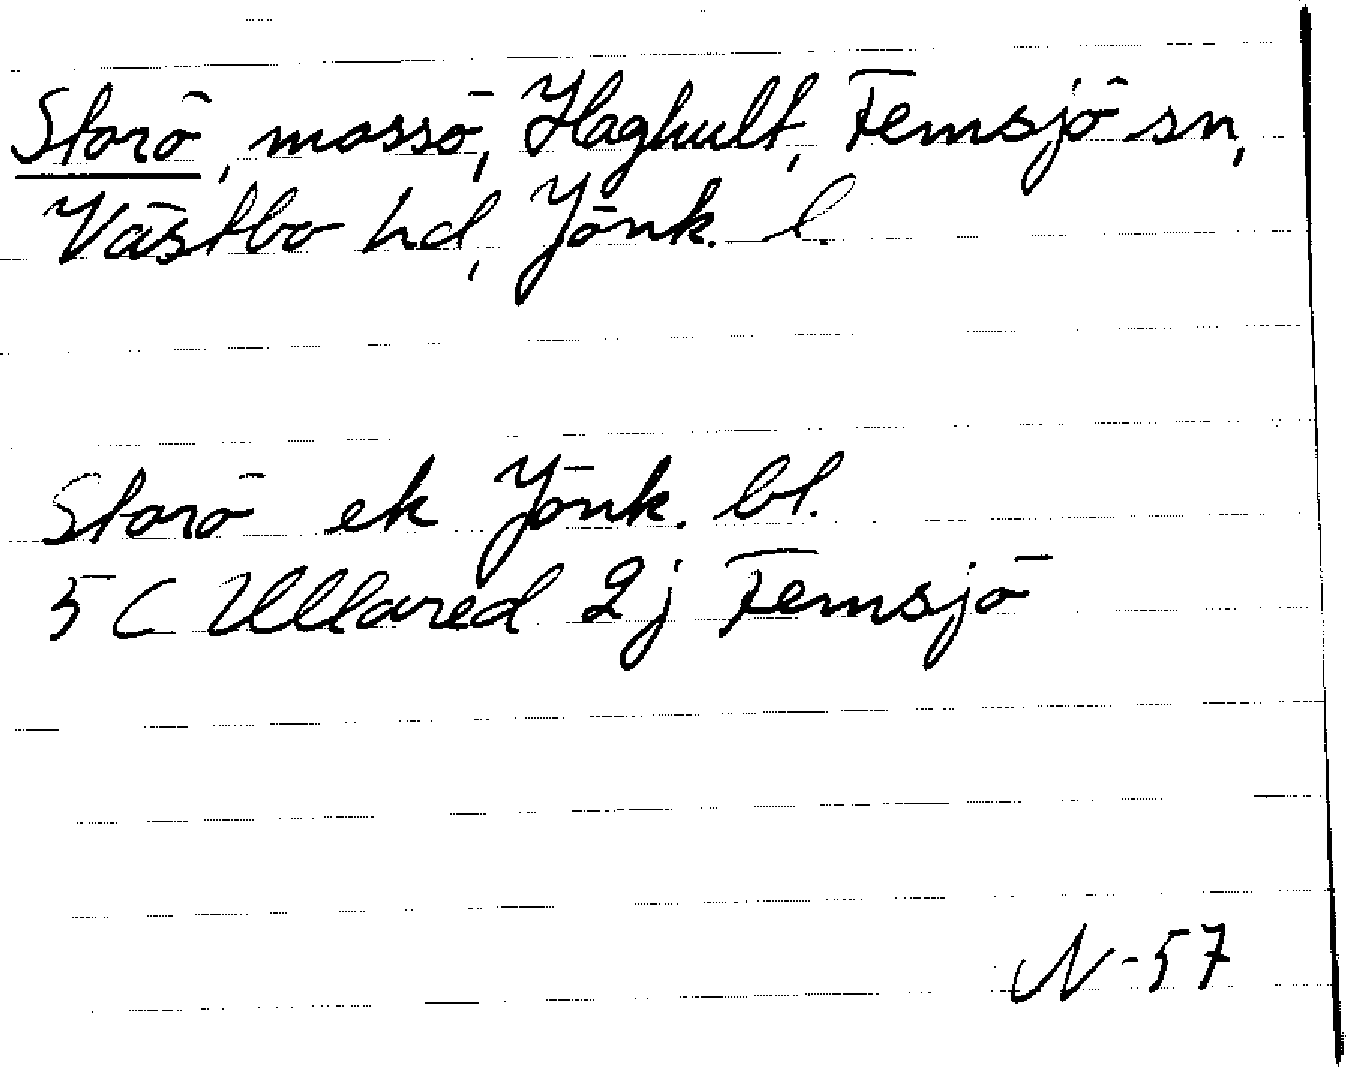 Storö, mossö, Haghult, Femsjö sn,
Västbo hd, Jönk. l.
Storö ek Jönk. bl.
5 C Ullared 2j Femsjö
N-57